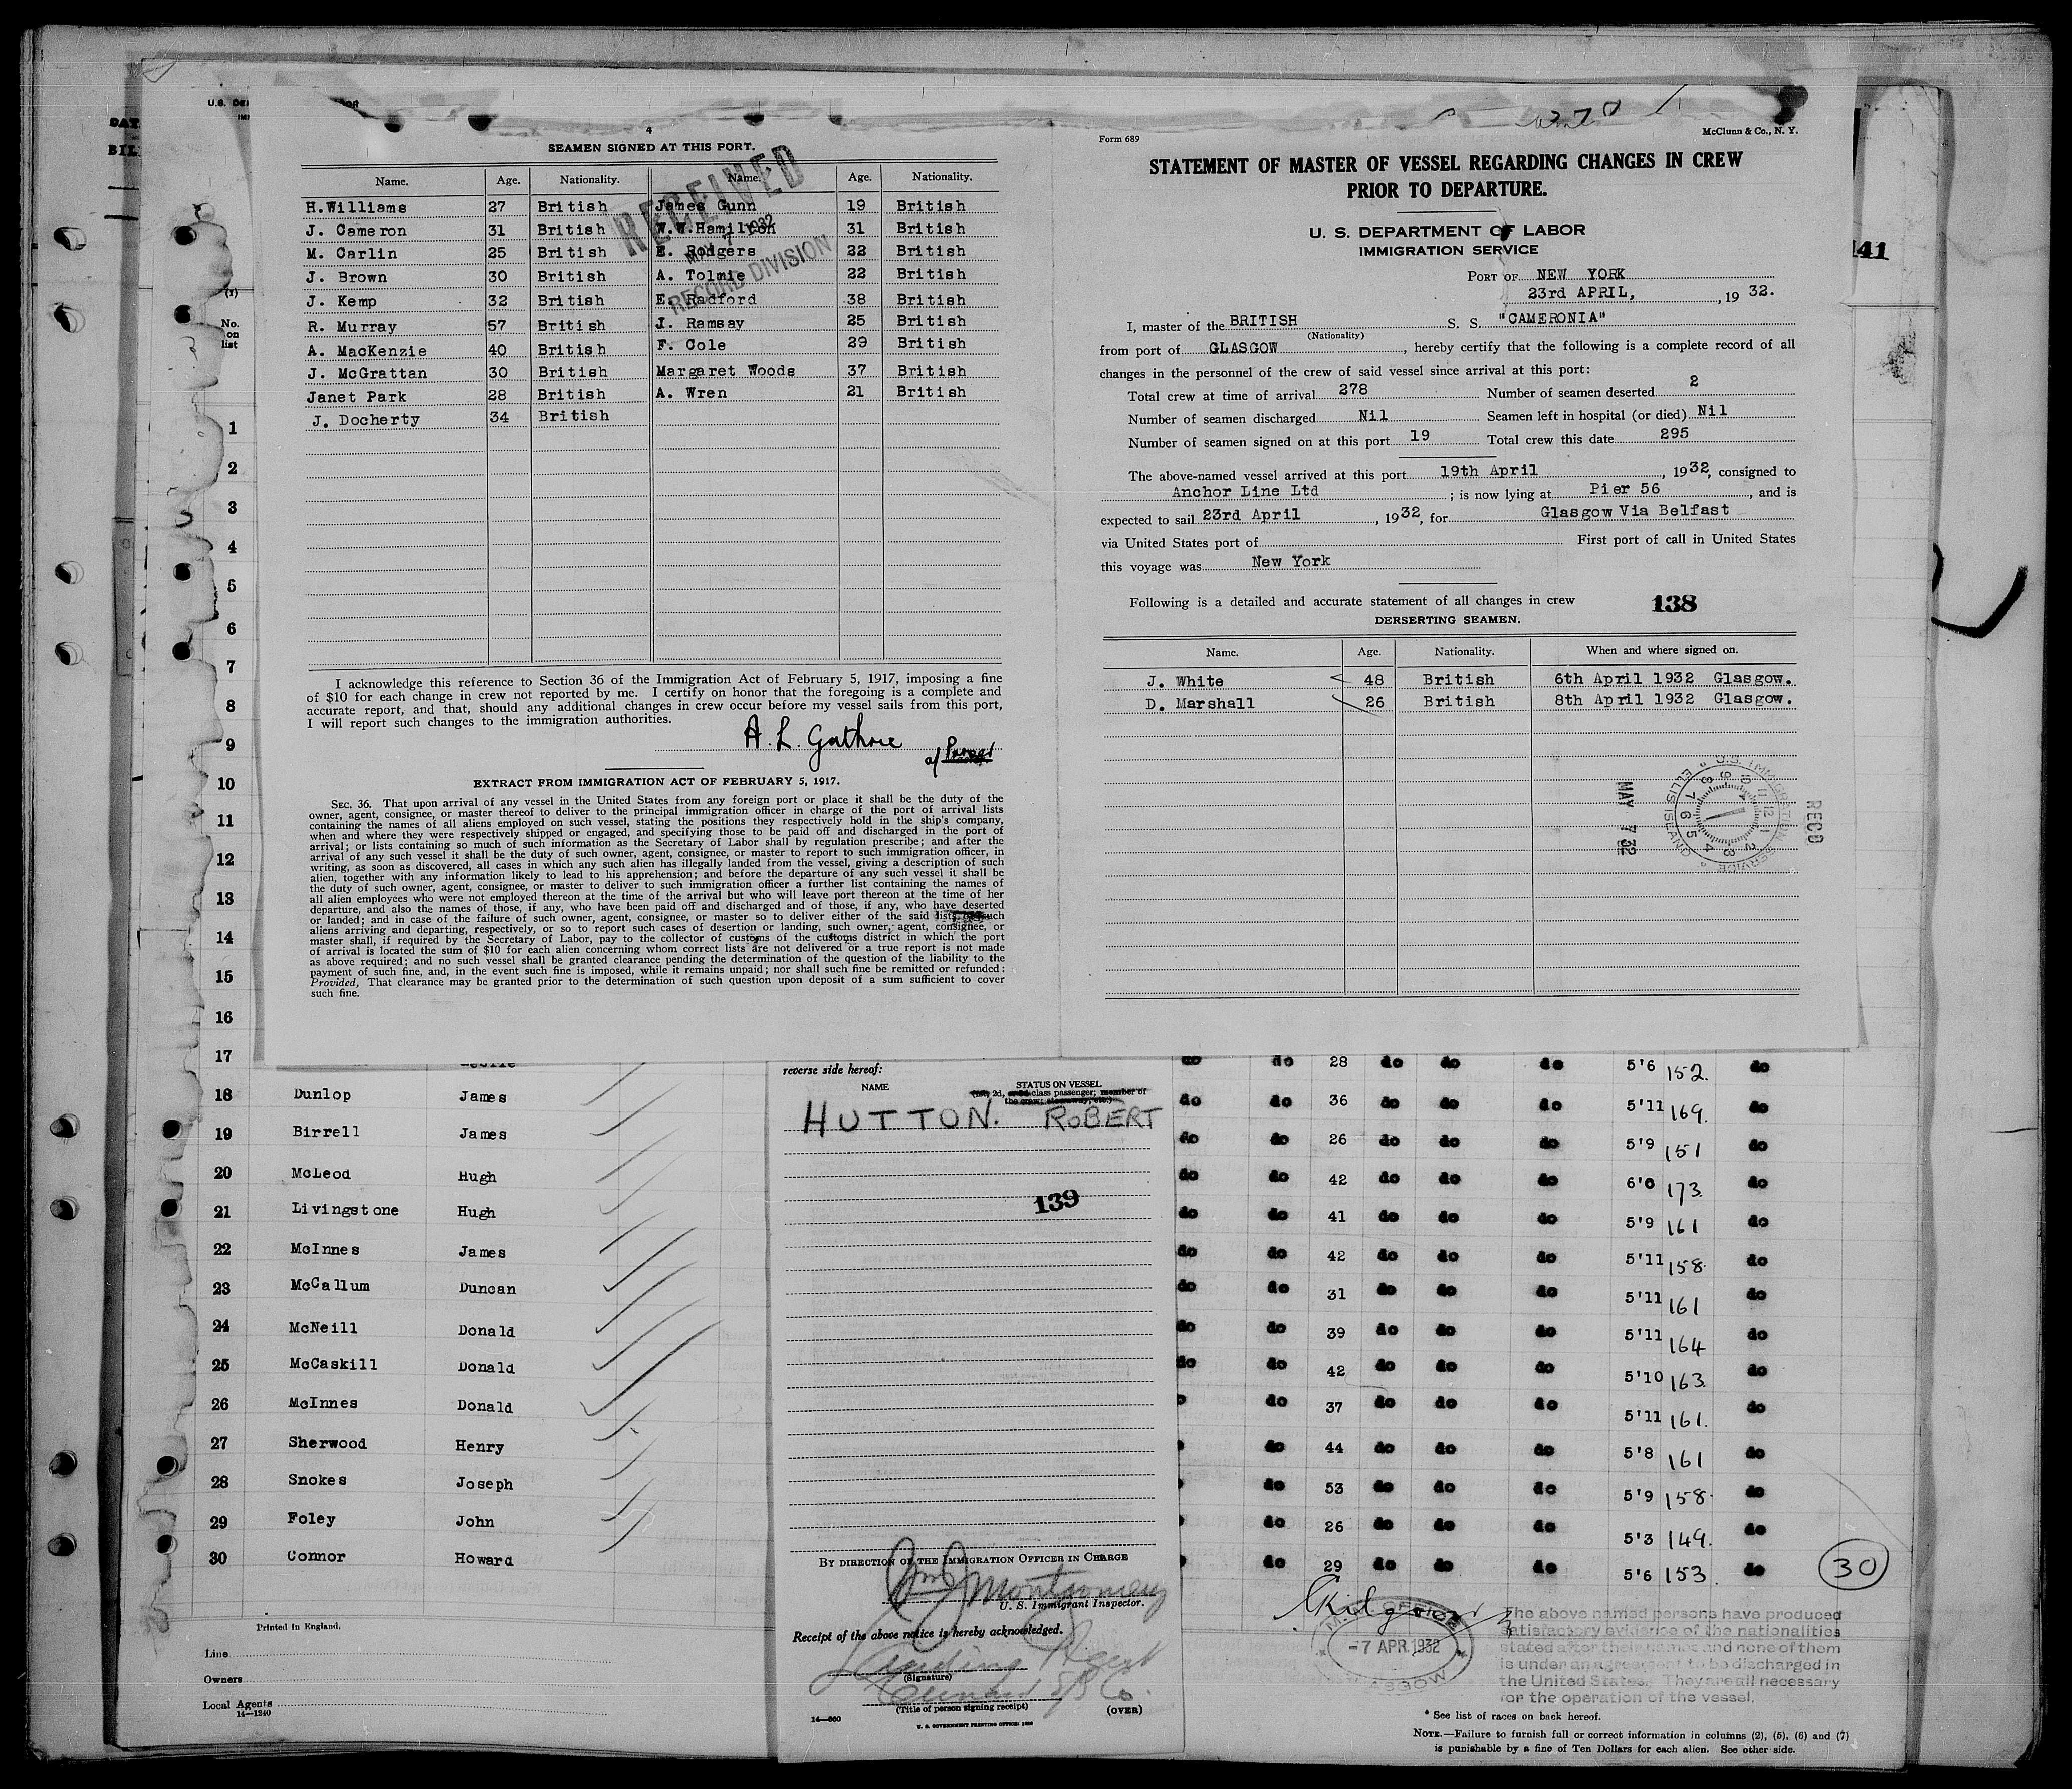 U.S. DE
DAT
BIL
4
SEAMEN SIGNED AT THIS PORT.
Name. Age. Nationality. Name. Age. Nationality.
H.Williams 27 British James Gunn 19 British
J. Cameron 31 British W.W.Hamilton 31 British
M. Carlin 25 British E. Rodgers 22 British
J. Brown 30 British A. Tolmie 22 British
J. Kemp 32 British E. Radford 38 British
R. Murray 57 British J. Ramsay 25 British
A. MacKenzie 40 British F. Cole 29 British
J. McGrattan 30 British Margaret Woods 37 British
Janet Park 28 British A. Wren 21 British
J. Docherty 34 British
RECEIVED
MAY 7 1932
RECORD DIVISION
I acknowledge this reference to Section 36 of the Immigration Act of February 5, 1917, imposing a fine
of $10 for each change in crew not reported by me. I certify on honor that the foregoing is a complete and
accurate report, and that, should any additional changes in crew occur before my vessel sails from this port,
I will report such changes to the immigration authorities.
A. L. Guthrie
a/ Purser
EXTRACT FROM IMMIGRATION ACT OF FEBRUARY 5, 1917.
SEC. 36. That upon arrival of any vessel in the United States from any foreign port or place it shall be the duty of the
owner, agent, consignee, or master thereof to deliver to the principal immigration officer in charge of the port of arrival lists
containing the names of all aliens employed on such vessel, stating the positions they respectively hold in the ship's company,
when and where they were respectively shipped or engaged, and specifying those to be paid off and discharged in the port of
arrival; or lists containing so much of such information as the Secretary of Labor shall by regulation prescribe; and after the
arrival of any such vessel it shall be the duty of such owner, agent, consignee, or master to report to such immigration officer, in
writing, as soon as discovered, all cases in which any such alien has illegally landed from the vessel, giving a description of such
alien, together with any information likely to lead to his apprehension; and before the departure of any such vessel it shall be
the duty of such owner, agent, consignee, or master to deliver to such immigration officer a further list containing the names of
all alien employees who were not employed thereon at the time of the arrival but who will leave port thereon at the time of her
departure, and also the names of those, if any, who have been paid off and discharged and of those, if any, who have deserted
or landed; and in case of the failure of such owner, agent, consignee, or master so to deliver either of the said lists such
aliens arriving and departing, respectively, or so to report such cases of desertion or landing, such owner, agent, consignee, or
master shall, if required by the Secretary of Labor, pay to the collector of customs of the customs district in which the port
of arrival is located the sum of $10 for each alien concerning whom correct lists are not delivered or a true report is not made
as above required; and no such vessel shall be granted clearance pending the determination of the question of the liability to the
payment of such fine, and, in the event such fine is imposed, while it remains unpaid; nor shall such fine be remitted or refunded:
Provided, That clearance may be granted prior to the determination of such question upon deposit of a sum sufficient to cover
such fine.
Form 689
McClunn & Co., N. Y.
STATEMENT OF MASTER OF VESSEL REGARDING CHANGES IN CREW
PRIOR TO DEPARTURE.
U. S. DEPARTMENT OF LABOR
IMMIGRATION SERVICE
PORT OF NEW YORK
23rd APRIL, , 19 32.
I, master of the BRITISH S. S. "CAMERONIA"
(Nationality)
from port of GLASGOW , hereby certify that the following is a complete record of all
changes in the personnel of the crew of said vessel since arrival at this port:
Total crew at time of arrival 278 Number of seamen deserted 2
Number of seamen discharged Nil Seamen left in hospital (or died) Nil
Number of seamen signed on at this port 19 Total crew this date 295
The above-named vessel arrived at this port 19th April , 1932, consigned to
Anchor Line Ltd ; is now lying at Pier 56 , and is
expected to sail 23rd April , 1932, for Glasgow Via Belfast
via United States port of First port of call in United States
this voyage was New York
Following is a detailed and accurate statement of all changes in crew 138
DERSERTING SEAMEN.
Name. Age. Nationality. When and where signed on.
J. White 48 British 6th April 1932 Glasgow.
D. Marshall 26 British 8th April 1932 Glasgow.
RECD
MAY 7 '32
U.S. IMMIGRATION SERVICE
ELLIS ISLAND
141
(1)
No.
on
list
1
2
3
4
5
6
7
8
9
10
11
12
13
14
15
16
17 do do 28 do do do 5'6 152. do
18 Dunlop James do do 36 do do do 5'11 169. do
19 Birrell James do do 26 do do do 5'9 151 do
20 McLeod Hugh do do 42 do do do 6'0 173 do
21 Livingstone Hugh do do 41 do do do 5'9 161 do
22 McInnes James do do 42 do do do 5'11 158 do
23 McCallum Duncan do do 31 do do do 5'11 161 do
24 McNeill Donald do do 39 do do do 5'11 164 do
25 McCaskill Donald do do 42 do do do 5'10 163. do
26 McInnes Donald do 37 do do do 5'11 161. do
27 Sherwood Henry do 44 do do do 5'8 161 do
28 Snokes Joseph do 53 do do do 5'9 158 do
29 Foley John do 26 do do do 5'3 149. do
30 Connor Howard do 29 do do do 5'6 153. do
30
reverse side hereof:
NAME STATUS ON VESSEL
(1st, 2d, or 3d class passenger; member of
the crew; stowaway, etc.)
HUTTON. ROBERT
139
BY DIRECTION OF THE IMMIGRATION OFFICER IN CHARGE
Montgomery
U. S. Immigrant Inspector.
Receipt of the above notice is hereby acknowledged.
Landing Agent
(Signature)
Cunard S/S Co.
(Title of person signing receipt)
(OVER)
14—880
U. S. GOVERNMENT PRINTING OFFICE: 1930
Printed in England.
Line
Owners
Local Agents
14—1240
OFFICE
-7 APR. 1932
GLASGOW
The above named persons have produced
satisfactory evidence of the nationalities
stated after their names and none of them
is under an agreement to be discharged in
the United States. They are all necessary
for the operation of the vessel.
* See list of races on back hereof.
NOTE.—Failure to furnish full or correct information in columns (2), (5), (6) and (7)
is punishable by a fine of Ten Dollars for each alien. See other side.